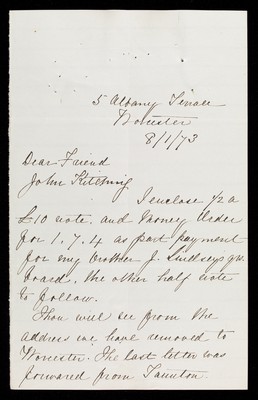 5 Albany Terrace
Worcester
8/1/73
Dear Friend
John Kitching
I enclose 1/2 a
£10 note. and Money Order
for 1.7.4 as part payment
for my brother J. Lindseys qr.
board. the other half note
to follow.
Thou will see from the
address we have removed to
Worcester. The last letter was
forwared from Taunton.